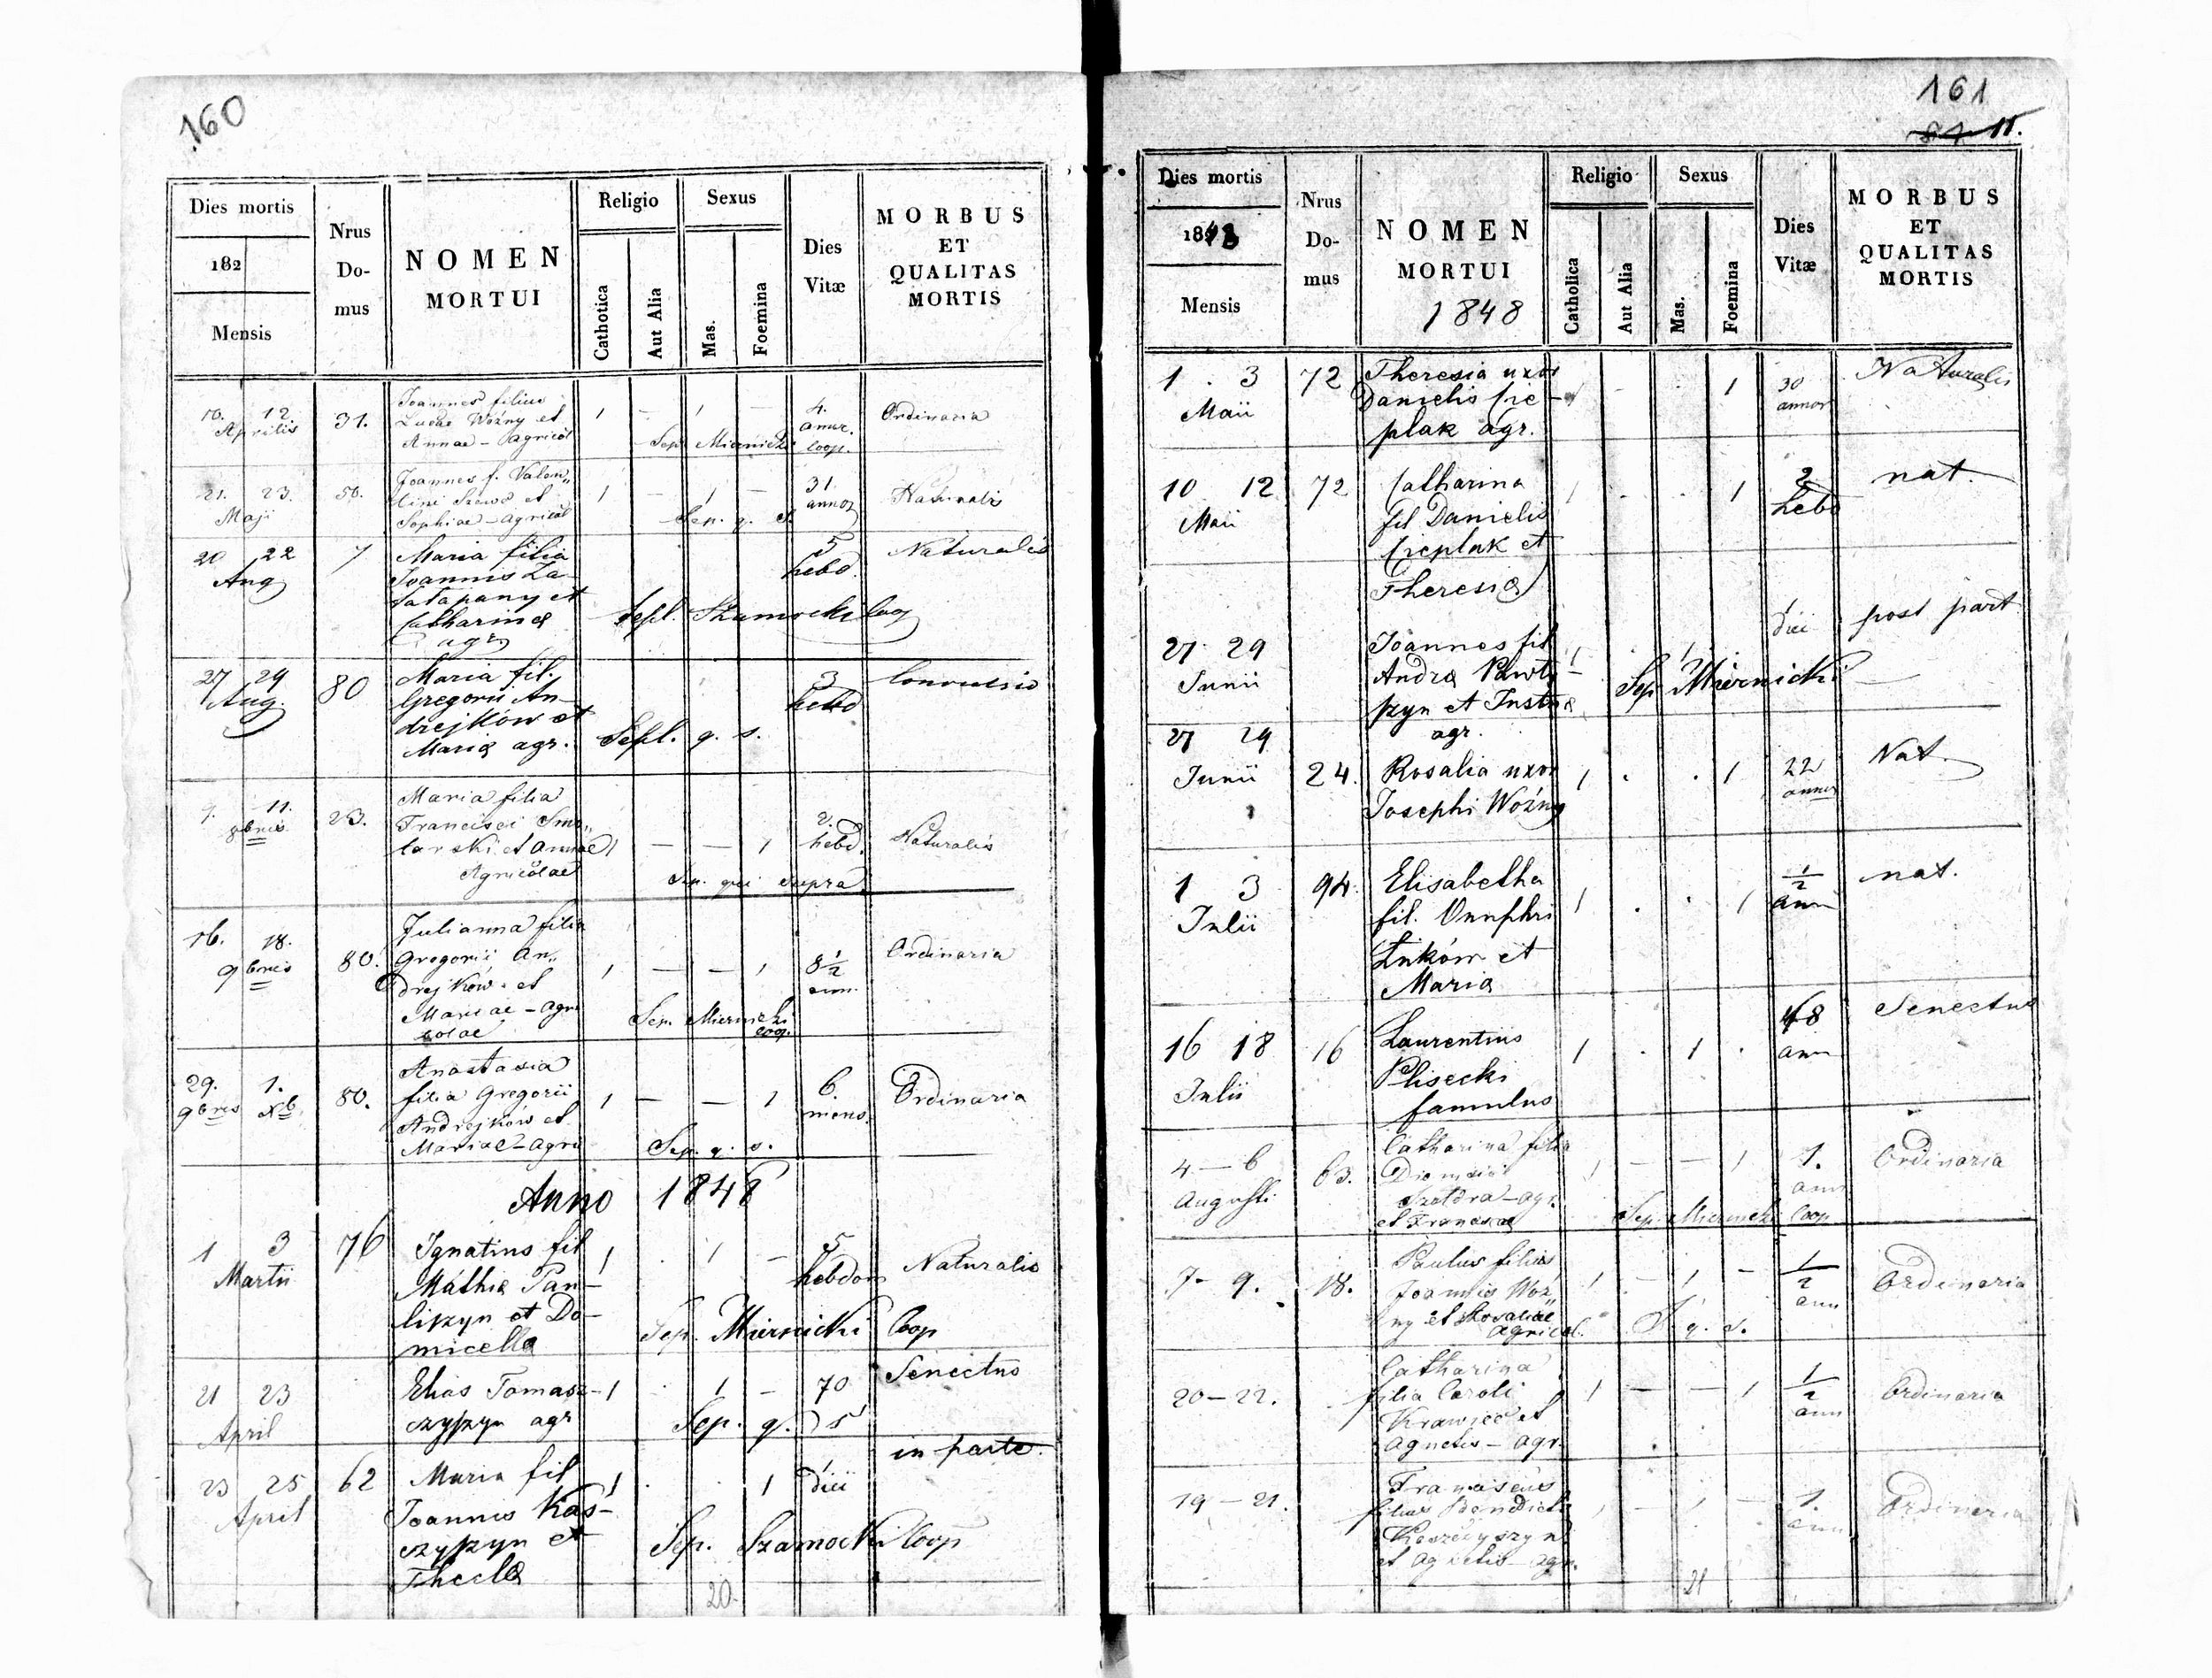 160
Dies mortis
182
Mensis
Nrus
Do-
mus
NOMEN
MORTUI
Religio
Cathotica
Aut Alia
Sexus
Mas.
Foemina
Dies
Vitæ
MORBUS
ET
QUALITAS
MORTIS
10. 12. Aprilis 31. Joannes filius 1 — 1 — 4. Ordinaria
Lucae Woźny et annor.
Annae - agricol Sep. Miernicki Coop.
21. 23. Maji 56. Joannes f. Valen„ 1 1 — 31. Naturalis
tini Szewc et annor
Sophiae - agricol Sep. q. s.
20 22 Aug 7 Maria filia 5 Naturalis
Joannis Za- hebd.
Catharina
agr Sepl. Szamocki Coop
27 29 Aug. 80 Maria fil. 3 Convulsio
Gregorii An- hebd
drejków et
Maria agr. Sepl. q. s.
9. 11. 8bris 23. Maria filia 2. Naturalis
Francisci Smo„ hebd.
larski et Annae 1 — — 1
Agricolae Sep. qui supra
16. 18. 9bris 80. Julianna filia Ordinaria
Gregorii An„ 1 — — 1 8 1/2
drejków et ann.
Mariae - agri
colae Sep. Miernicki coop.
29. 9bris 1. Xb. 80. Anastasia 6. Ordinaria
filia Gregorii 1 — — 1 mens.
Andrejków et
Mariae - agri Sep. q. s.
Anno 1848
1 3 Martii 76 Ignatius fil 1 . 1 — 5 Naturalis
Mathia Pau- hebdom
liszyn et Do-
micella Sep. Miernicki Coop
21 23 April Elias Tomasz- 1 . 1 — 70 Senectus
czyszyn agr Sep. q. s
23 25 April 62 Maria fil 1 . . 1 1 diei in parte.
Joannis Kas-
czyszyn et
Thecla Sep. Szamocki Coop
20.
161
11.
Dies mortis
1848
Mensis
Nrus
Do-
mus
NOMEN
MORTUI
1848
Religio
Catholica
Aut Alia
Sexus
Mas.
Foemina
Dies
Vitæ
MORBUS
ET
QUALITAS
MORTIS
1 . 3 Maii 72 Theresia uxor 1 - . 1 30 Naturalis
Danielis Cie- annor
plak agr.
10 12 Maii 72 Catharina 1 . . 1 2 nat.
fil Danielis hebd
Cieplak et
Theresia
27 29 Junii Joannes fil 1 1 1 diei post part
Andra
agr. Sep. Miernicki
27 29 Junii 24. Rosalia uxor 1 . . 1 22 Nat.
Josephi Woźny annor
1 3 Julii 94. Elisabetha 1 . . 1 1/2 nat.
fil. Onuphri ann
Łuków et
Maria
16 18 Julii 16 Laurentius 1 . 1 . 68 Senectus
Plisecki ann
famulus
4 — 6 Augusti 63. Catharina filia 1 — — 1 1. Ordinaria
ann
- agr.
et Francisca Sep. Miernicki Coop
7 - 9. 18. Paulus filius 1 — 1 — 1/2 Ordinaria
Joannis Woź„ ann
ny et Rosaliae
agricol. S. q. s.
20 — 22. Catharina 1 — — 1 1/2 Ordinaria
filia Caroli ann
Krawiec et
Agnetis - agr.
19 — 21. Franciscus 1 — 1 — 1. Ordinaria
filius Benedicti ann
et Agnetis agr.
21